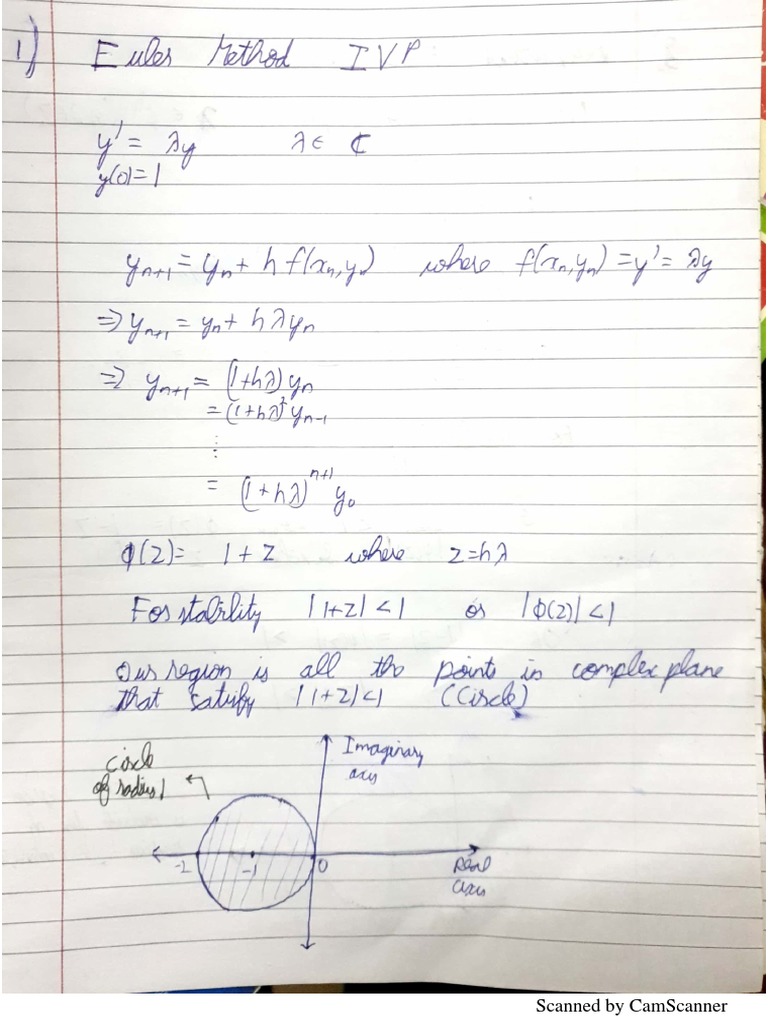 1) Euler Method IVP
y' = λy λ ∈ ₵
y(0) = 1
yₙ₊₁ = yₙ + h f(xₙ, yₙ) where f(xₙ, yₙ) = y' = λy
⇒ yₙ₊₁ = yₙ + hλyₙ
⇒ yₙ₊₁ = (1+hλ)yₙ
= (1+hλ)² yₙ₋₁
⋮
= (1+hλ)ⁿ⁺¹ y₀
ϕ(z) = 1 + z where z = hλ
For stability |1+z| < 1 or |ϕ(z)| < 1
Our region is all the points in complex plane
that satisfy |1+z| < 1 (Circle)
Circle
of radius 1
Imaginary
axis
-2 -1 0
Real
axis
Scanned by CamScanner